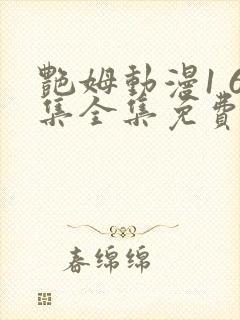 艷姆動漫1 6
集全集免費
春绵绵